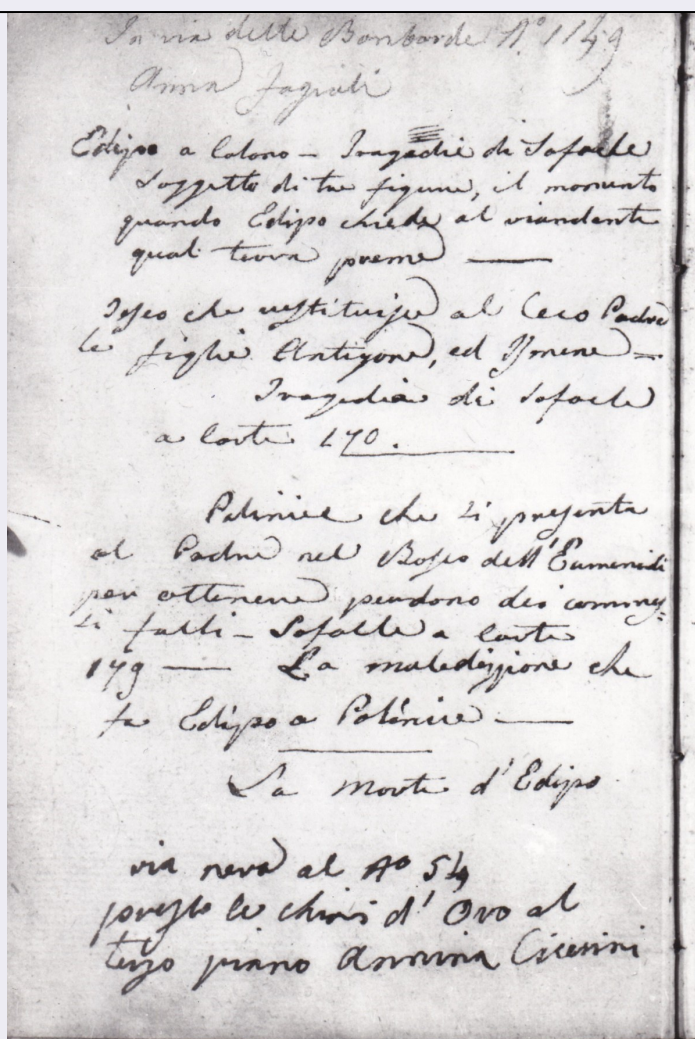 In via delle Bombarde N.º 1149
Anna Fagioli
Edipo a Colono – Tragedie di Sofocle
Soggetto di tre figure, il momento
quando Edipo chiede al viandante
qual terra preme —
Teseo che restituisce al Ceco Padre
le figlie Antigone, ed Ismene =
Tragedia di Sofocle
a carte 170.
Polinice che si presenta
al Padre nel Bosco dell'Eumenidi
per ottenere perdono dei commes=
si falli – Sofocle a carte
179 — La maledizione che
fa Edipo a Polinice —
La Morte d'Edipo
via nova al Nº 54
presso le chiavi d'Oro al
terzo piano Annina